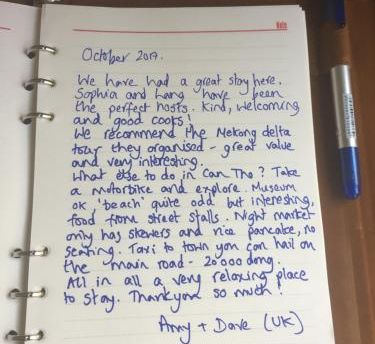 Note
October 2017.
We have had a great stay here.
Sophia and Lang have been
the perfect hosts. Kind, welcoming
and good cooks!
We recommend the Mekong delta
tour they organised - great value
and very interesting.
What else to do in Can Tho? Take
a motorbike and explore. Museum
ok, 'beach' quite odd but interesting,
food from street stalls. Night market
only has skewers and rice pancake, no
seating. Taxi to town you can hail on
the main road - 20 000 dong.
All in all a very relaxing place
to stay. Thankyou so much!
Amy + Dave (UK)